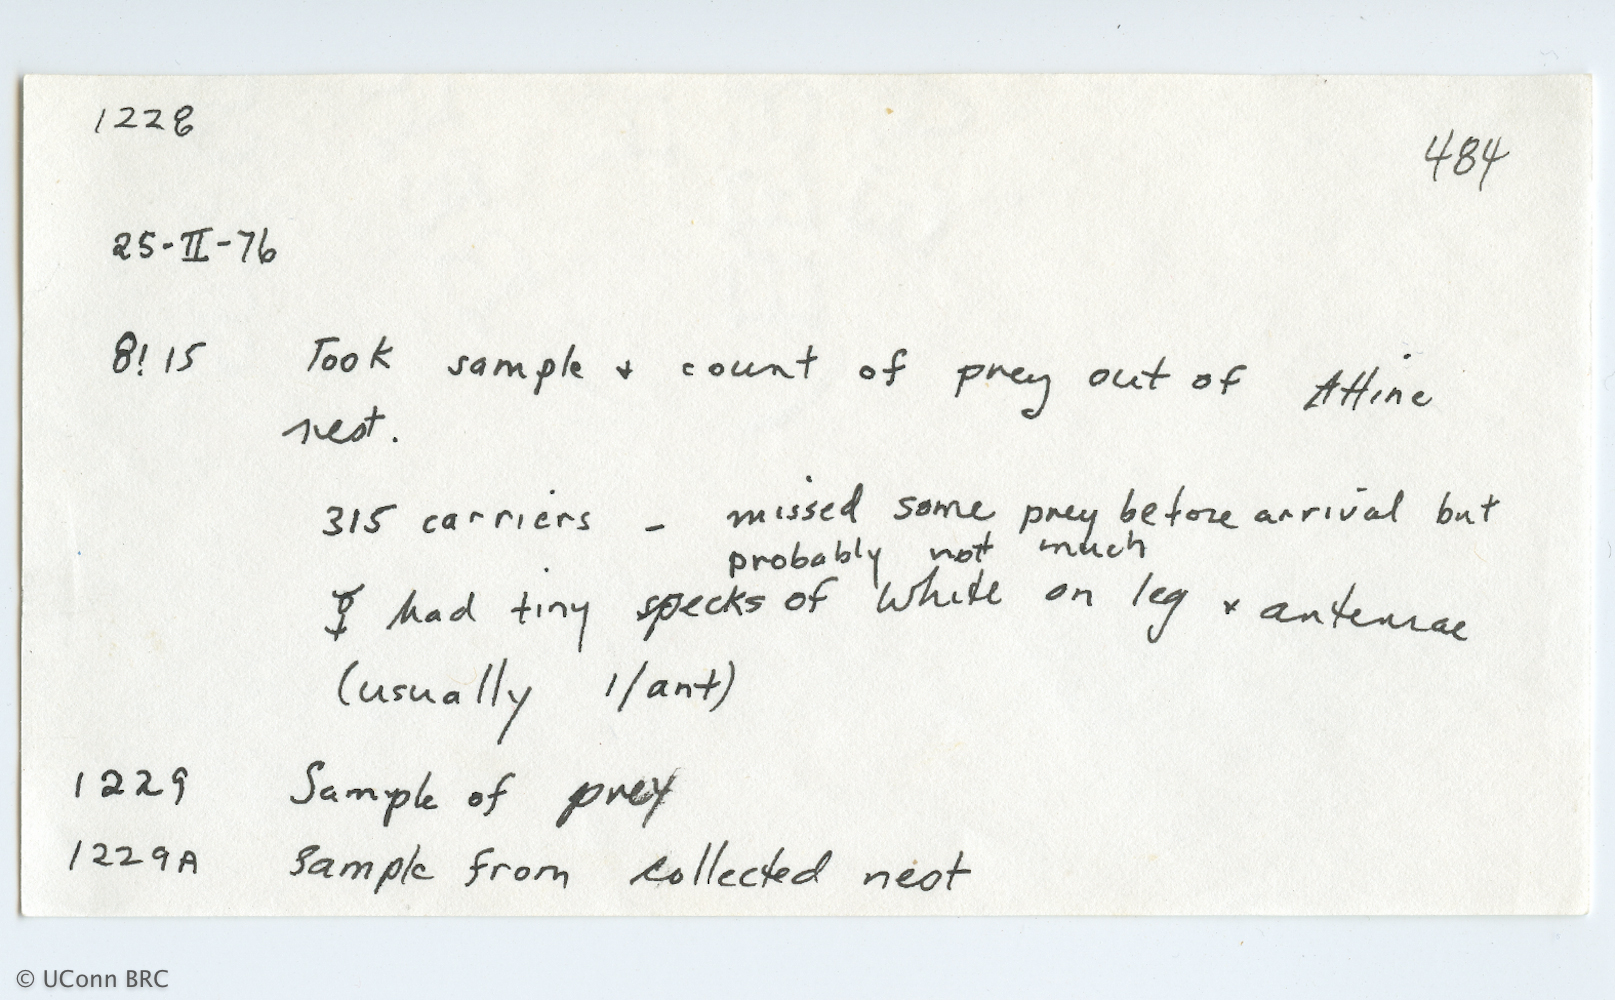 1228
484
25-II-76
8:15 Took sample + count of prey out of Attine
nest.
315 carriers - missed some prey before arrival but
probably not much
☿ had tiny specks of white on leg + antennae
(usually 1/ant)
1229 Sample of prey
1229A Sample from collected nest
© UConn BRC